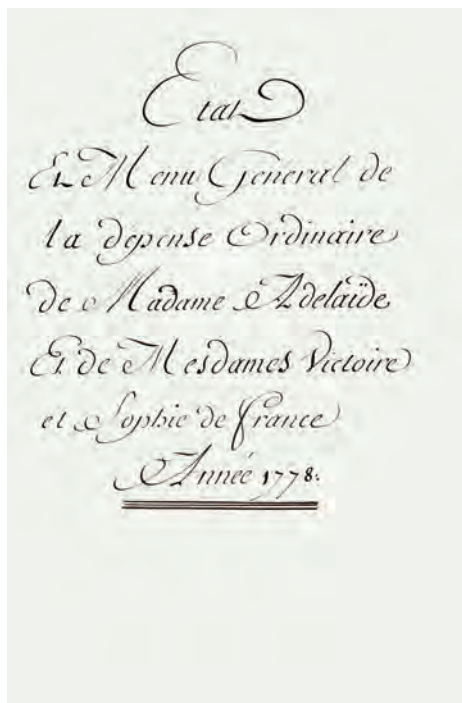 Etat
Et Menu General de
la depense Ordinaire
de Madame Adelaïde
Et de Mesdames Victoire
et Sophie de france
Année 1778.